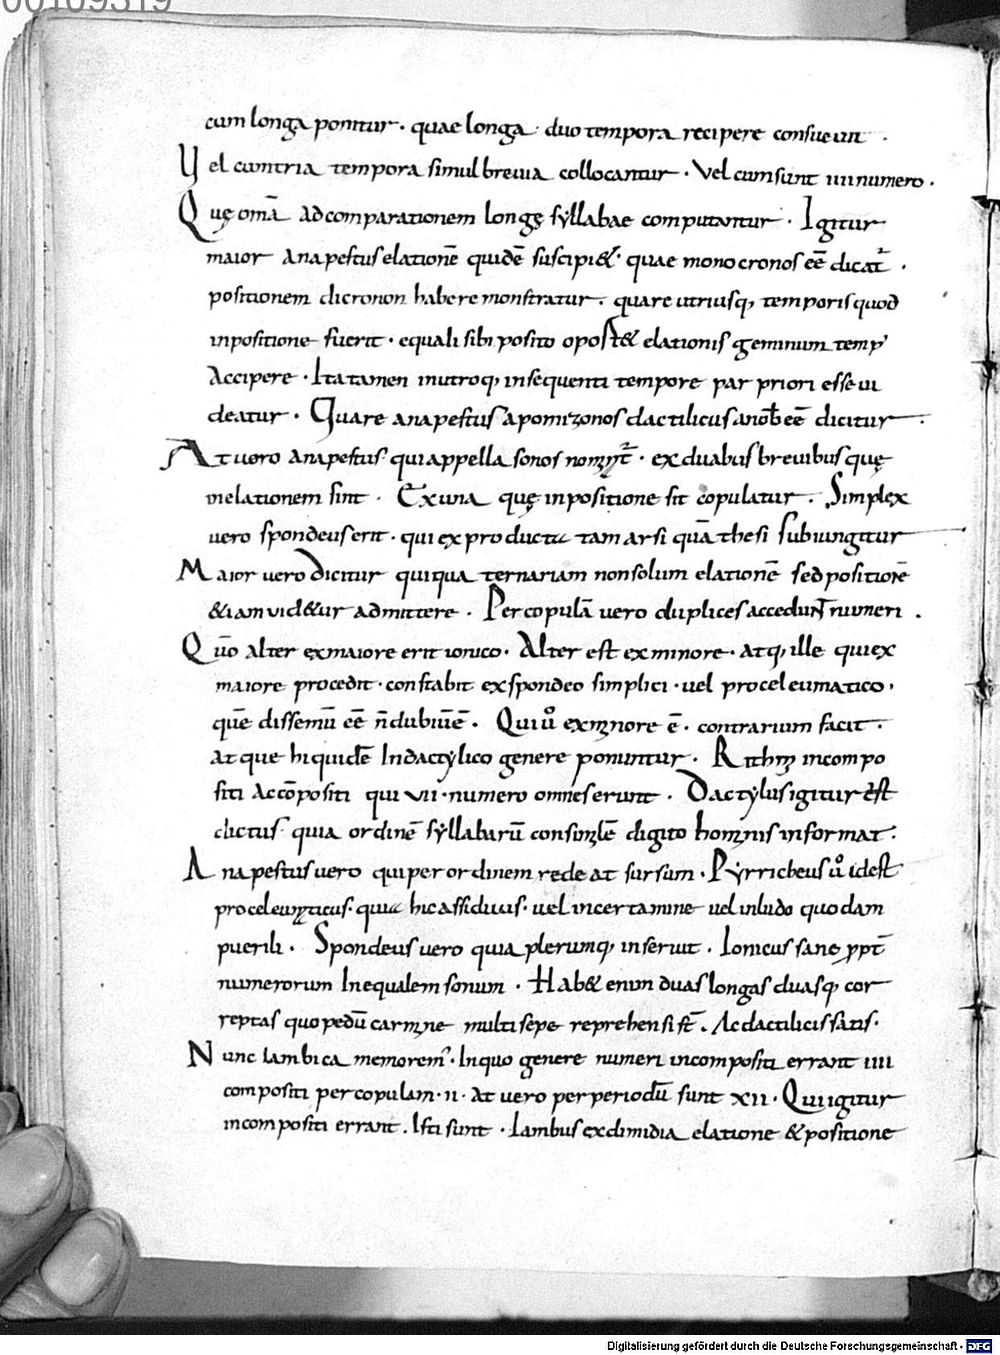 00109319
cum longa ponitur · quae longa · duo tempora recipere consueuit ·
Vel cum tria tempora simul breuia collocantur · Vel cum sunt iiii numero ·
Quę om̄a ad comparationem longę syllabae computantur · Igitur
maior anapestus elationē quidē suscipi& · quae monocronos eē dicat᷑ ·
positionem dicronon habere monstratur · quare utriusq; temporis quod
inpositione fuerit · equali sibi posito oport& elationis geminum temp'
accipere · Ita tamen inutroq; insequenti tempore par priori esse ui
deatur · Quare anapestus apomizonos dactilicus a nob̄ eē dicitur
At uero anapestus qui appella sonos · ex duabus breuibus quę
inelationem sint · Ex una quę inpositione sit copulatur · Simplex
uero spondeus erit · qui ex producta tam arsi quā thesi subiungitur
Maior uero dicitur qui quaternariam non solum elationē sed positionē
&iam uid&ur admittere · Per copulā uero duplices accedunt numeri ·
Quō alter ex maiore erit ionico · Alter est ex minore · atq; ille qui ex
maiore procedit · constabit ex spondeo simplici · uel proceleumatico ·
quē dissemū eē n̄ dubiū ē · Qui ū ex minore ē · contrarium facit ·
atque hi quidē In dactylico genere ponuntur · Rithmi incompo
siti ac cōpositi qui VII · numero omnes erunt · Dactylus igitur est
dictus quia ordinē syllabarū consimilē digito hominis informat ·
Anapestus uero qui per ordinem redeat sursum · Pyrricheus ū idest
proceleumaticus · quia hic assiduus · uel in certamine uel inludo quodam
puerili · Spondeus uero quia plerumq; inseruit · Ionicus sane ppt̄
numerorum Inequalem sonum · Hab& enim duas longas duasq; cor
reptas quo pedū carmine multi sepe reprehensi st̄ · Ac dactilicis satis ·
Nunc Iambica memorem' · Inquo genere numeri incompositi errant iiii
compositi per copulam · ii · at uero per periodū sunt xii · Qui igitur
incompositi errant · Isti sunt · Iambus ex dimidia elatione & positione
Digitalisierung gefördert durch die Deutsche Forschungsgemeinschaft - DFG